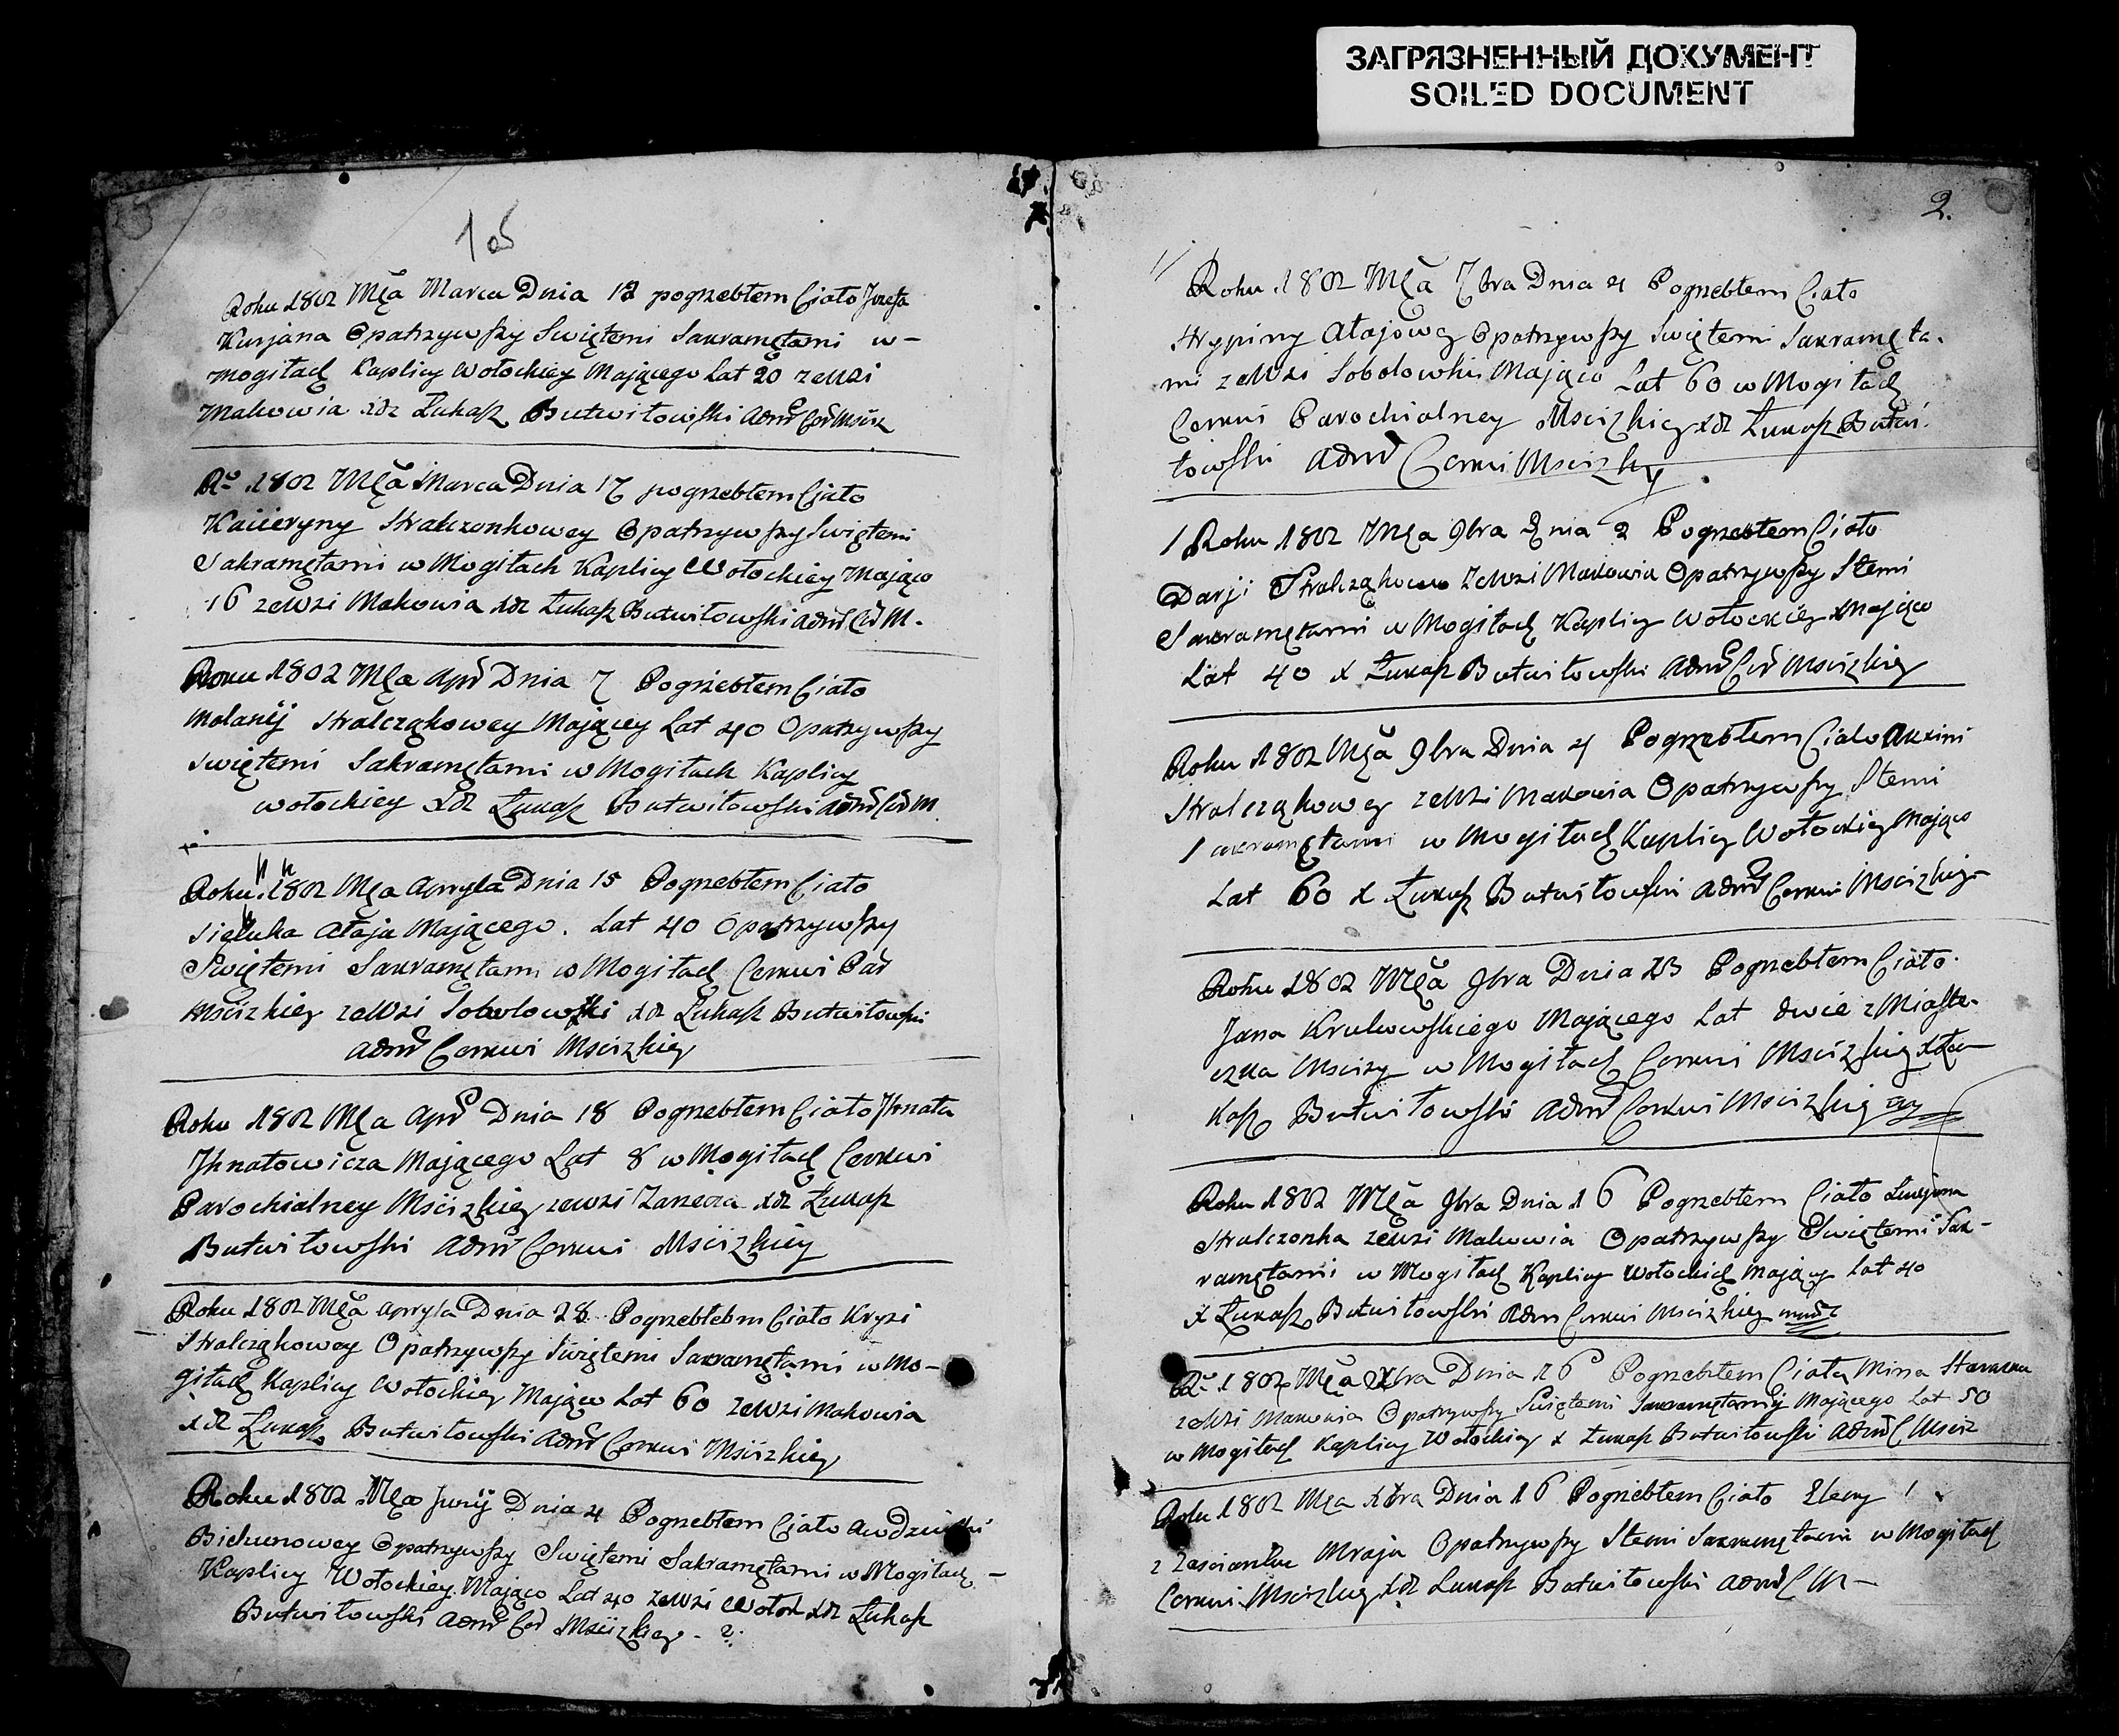 ЗАГРЯЗНЕННЫЙ ДОКУМЕНТ
SOILED DOCUMENT
Roku 1802 Mca Marca Dnia pogrzebłem Ciało Jozefa
Kurjana Opatrzywszy Swiętemi Sakramętami w-
mogiłach Kaplicy Wołockiey Maiącego Lat 20 zeWsi
Makowia xdz Łukasz Butwiłowski Admr Cer Mscisz
Ro 1802 Mca Marca Dnia 17 pogrzebłem Ciało
Strałczonkowey Opatrzywszy Swiętemi
Sakramętami w Mogiłach Kaplicy Wołockiey Maiąco
16 zeWsi Makowia xdz Łukasz Butwiłowski Admr Cr M.
Roku 1802 Mca Apr Dnia 7 Pogrzebłem Ciało
Malanij Strałcząkowey Maiącey Lat 40 Opatrzywszy
Swiętemi Sakramętami w Mogiłach Kaplicy
wołockiey xdz Łukasz Butwiłowski Admr Cr M.
Roku 1802 Mca Apryla Dnia 15 Pogrzebłem Ciało
Ałaja Maiącego. Lat 40 Opatrzywszy
Swiętemi Sakramętam w Mogiłach Cerkwi Par
Mscizkiey zeWsi Sobolowki xdz Łukasz Butwiłowski
Admr Cerkwi Mscizkiey
Roku 1802 Mca Apr Dnia 18 Pogrzebłem Ciało Jhnata
Jhnatowicza Maiącego Lat 8 w Mogiłach Cerkwi
Parochialney Mscizkiey zewsi Zarzecza xdz Łukasz
Butwiłowski Admr Cerkwi Mscizkiey
Roku 1802 Mca Apryla Dnia 28 Pogrzebłebm Ciało Kryzi
Strałcząkowey Opatrzywszy Swiętemi Sakramętami w Mo-
giłach Kaplicy Wołockiey Maiąco Lat 60 zeWsi Makowia
xdz Łukasz Butwiłowski Admr Cerkwi Mscizkiey
Roku 1802 Mca Junij Dnia 4 Pogrzebłem Ciało
Bichunowey Opatrzywszy Swiętemi Sakramętami w Mogiłach
Kaplicy Wołockiey Maiąco Lat 40 zeWsi Wołok xdz Łukasz
Butwiłowski Admr Cer Mscizkiey
2.
Roku 1802 Mca 7bra Dnia 4 Pogrzebłem Ciało
Ałajowey Opatrzywszy Swiętemi Sakramęta.
mi zeWsi Sobolowki Maiąco Lat 60 w Mogiłach
Cerkwi Parochialney Mscizkiey xdz Łukasz Butwi.
łowski Admr Cerkwi Mscizkey
Roku 1802 Mca 9bra Dnia 2 Pogrzebłem Ciało
Darji Strałcząkowo zeWsi Makowia Opatrzywszy Stemi
Sakramętami w Mogiłach Kaplicy Wołockiey Maiąco
Lat 40 x Łukasz Butwiłowski Admr Cer Mscizkiey
Roku 1802 Mca 9bra Dnia 4 Pogrzebłem Ciało Auxini
Strałcząkowey zeWsi Makowia Opatrzywszy Stemi
Sakramętami w Mogiłach Kaplicy Wołockiey Maiąco
Lat 60 x Łukasz Butwiłowski Admr Cerkwi Mscizkiey
Roku 1802 Mca 9bra Dnia 13 Pogrzebłem Ciało
Jana Krukowskiego Maiącego Lat dwie z Miaste-
czka Mscizy w Mogiłach Cerkwi Mscizkiey x Łu-
kasz Butwiłowski Admr Cerkwi Mscizkiey
Roku 1802 Mca 9bra Dnia 16 Pogrzebłem Ciało
Strałczonka zeWsi Makowia Opatrzywszy Swiętemi Sak-
ramętami w Mogiłach Kaplicy Wołockich Maiący Lat 40
x Łukasz Butwiłowski Admr Cerkwi Mscizkiey
Ro 1802 Mca Xbra Dnia 16 Pogrzebłem Ciała Mina
zeWsi Makowia Opatrzywszy Swiętemi Sakramętamij Maiącego Lat 50
w Mogiłach Kaplicy Wołockiey x Łukasz Butwiłowski Admr C Mscisz
Roku 1802 Mca Xbra Dnia 16 Pogrzebłem Ciało Eleny
z Zascianku Mraja Opatrzywszy Stemi Sakramętami w Mogiłach
Cerkwi Mscizkiey xdz Łukasz Butwiłowski Admr C M-